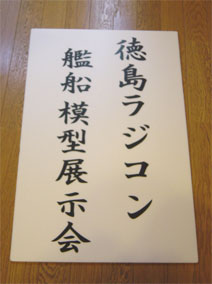 徳島ラジコン
艦船模型展示会